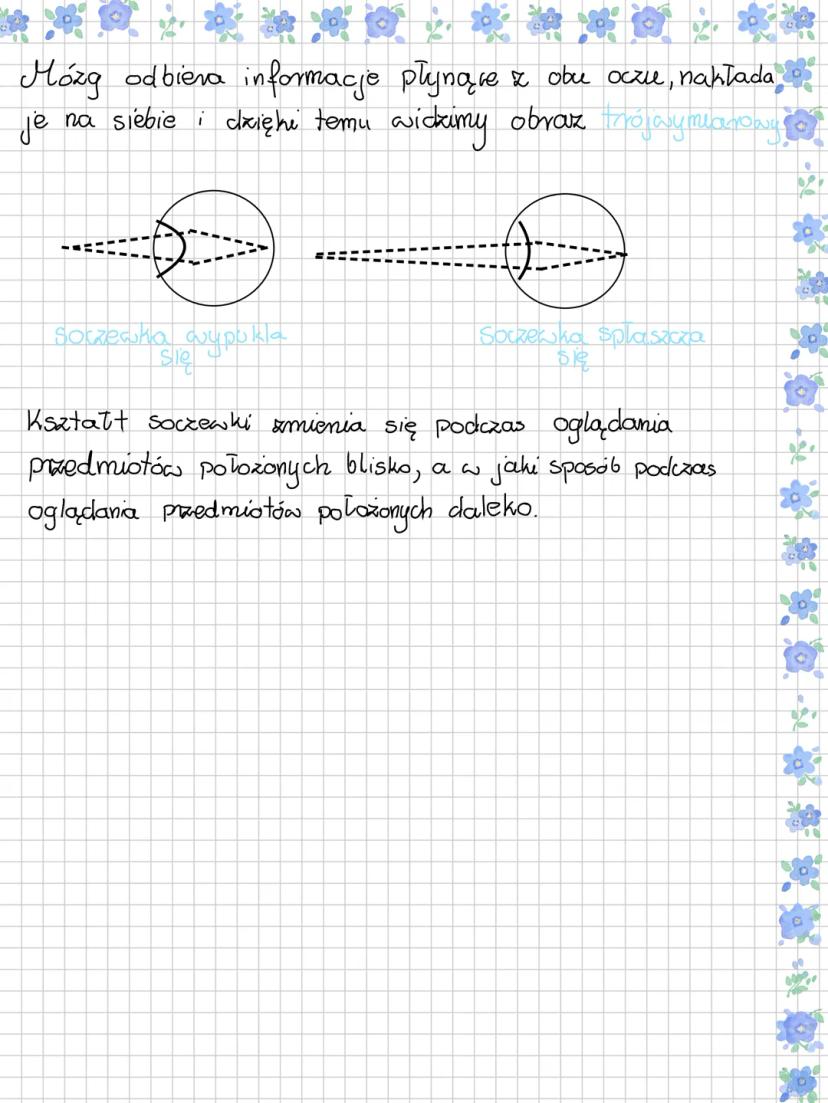 Mózg odbiera informacje płynące z obu oczu, nakłada
je na siebie i dzięki temu widzimy obraz trójwymiarowy
soczewka wypukla
się
soczewka spłaszcza
się
Kształt soczewki zmienia się podczas oglądania
przedmiotów położonych blisko, a w jaki sposób podczas
oglądania przedmiotów położonych daleko.